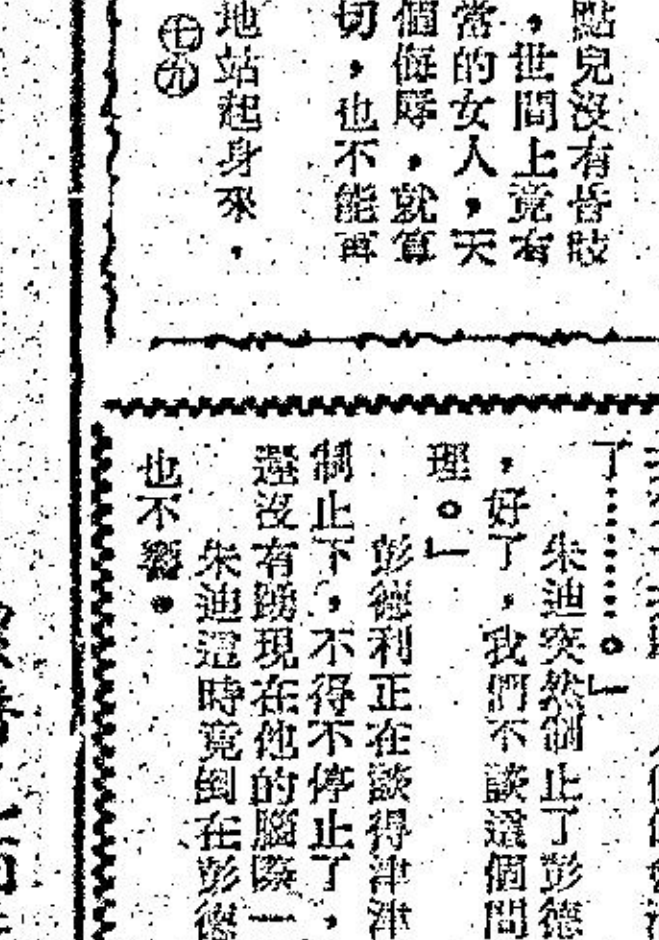 點兒沒有昏
，世間上竟有
當的女人，天
個侮辱，就算
切，也不能再
地站起身來，
㊆㊈
了………。」
朱迪突然制止了彭德
，好了，我們不談這個問
理。」
彭德利正在談得津津
制止下，不得不停止了，
還沒有踴現在他的腦際一
朱迪這時竟倒在彭德
也不響。